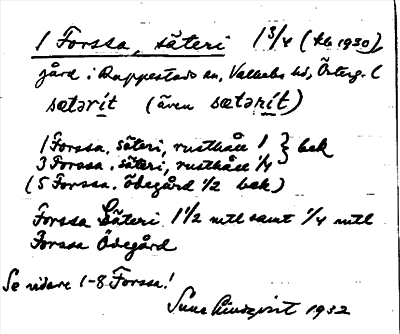 1 Forssa, säteri 1 3/4 (kb 1930)
gård i Rappestads sn, Valkebo hd, Österg. l
sætərit (även sætərit)
1 Forssa, säteri, rusthåll 1 } bek
3 Forssa, säteri, rusthåll 1/4
(5 Forssa, ödegård 1/2 bek)
Forssa Säteri 1 1/2 mtl samt 1/4 mtl
Forssa Ödegård
Se vidare 1-8 Forssa!
Sune Lindqvist 1932